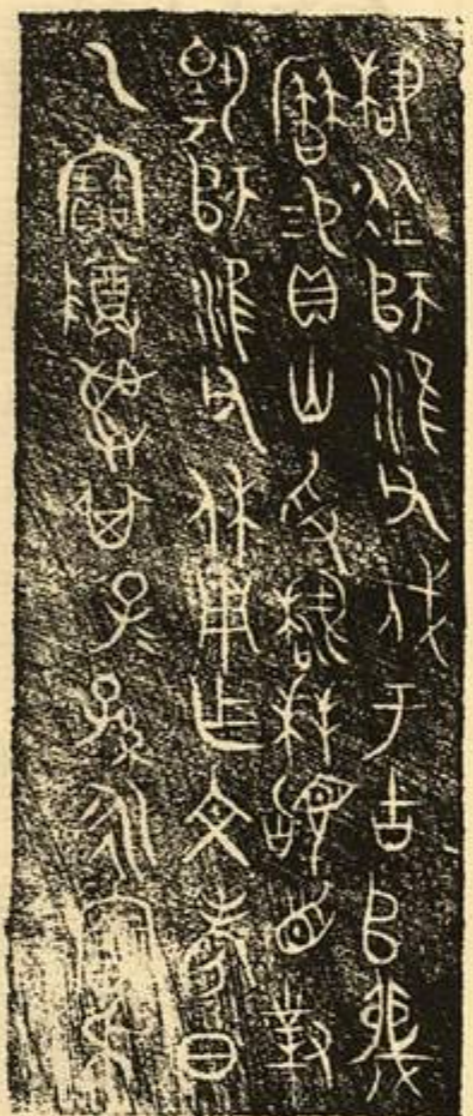 稽從師淮父戍于古𠂤蔑
曆易貝卅寽稽拜𩒨首對
揚師淮父休用乍文考日
乙寶尊彝其子=孫=永